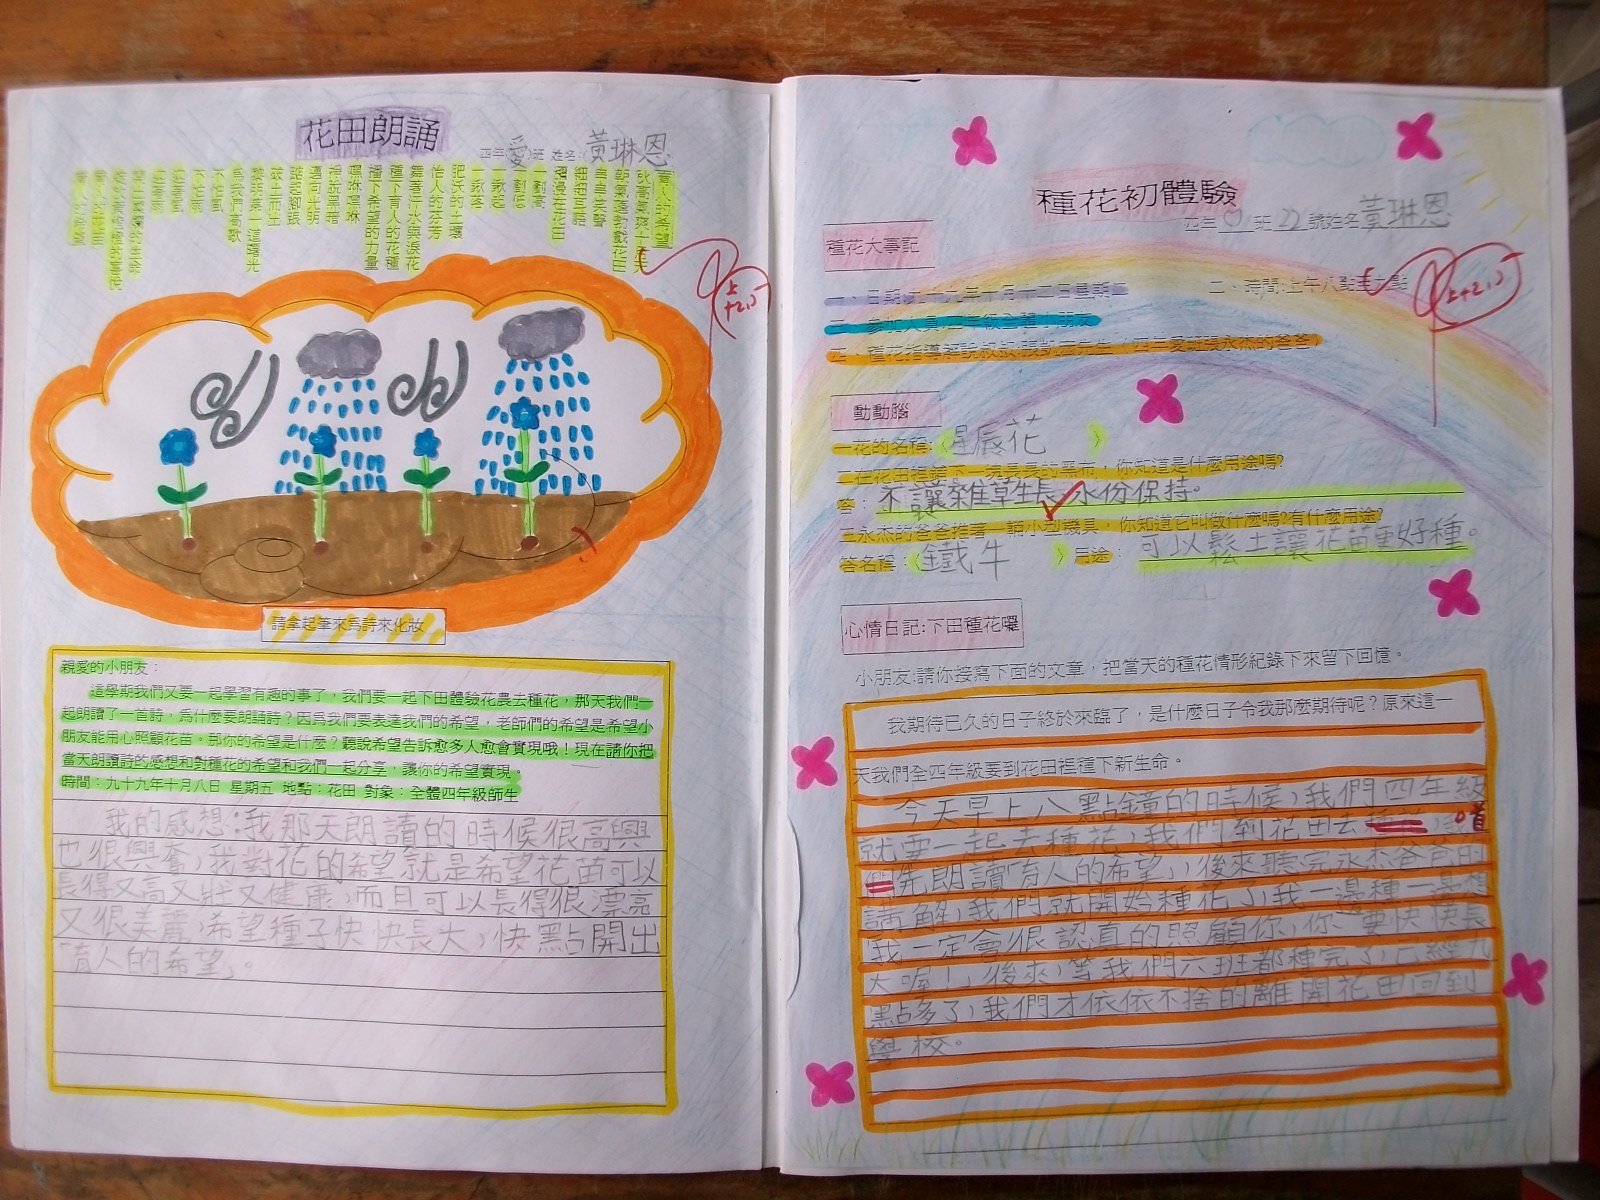 花田朗誦
四年(愛)班 姓名:(黃琳恩
育人的希望
一劃高
一劃低
一家哆
一家起
肥沃的土壤
怡人的芬芳
種下育人的花種
播下希望的力量
嘿咻嘿咻
揮別黑暗
邁向光明
踮起腳張
鼓土而生
為我們高歌
不怕風
不怕雨
請拿起筆來為詩來化妝
親愛的小朋友：
這學期我們又要一起學習有趣的事了，我們要一起下田體驗花農去種花，那天我們一
起朗讀了一首詩，為什麼要朗誦詩？因為我們要表達我們的希望，老師們的希望是希望小
朋友能用心照顧花苗。那你的希望是什麼？聽說希望告訴愈多人愈會實現哦！現在請你把
當天朗讀詩的感想和對種花的希望和我們一起分享，讓你的希望實現。
時間：九十九年十月八日 星期五 地點：花田 對象：全體四年級師生
我的感想:我那天朗讀的時候很高興
也很興奮,我對花的希望就是希望花苗可以
長得又高又壯又健康,而且可以長得很漂亮
又很美麗,希望種子快快長大,快點開出
「育人的希望」。
種花初體驗
四年 班 22 號姓名 黃琳恩
種花大事記
一、日期:九十九年十月十二日星期二
二、時間:上午八點至九點
三、參加人員:四年級全體小朋友
動動腦
一花的名稱:(星辰花 )
二在花田裡蓋下一塊長長的黑布，你知道是什麼用途嗎?
答：不讓雜草生長,水份保持。
三永杰的爸爸推著一輛小型機具，你知道它叫做什麼嗎?有什麼用途?
答名稱：(鐵牛 )用途：可以鬆土讓花苗更好種。
心情日記:下田種花囉
小朋友:請你接寫下面的文章，把當天的種花情形紀錄下來留下回憶。
我期待已久的日子終於來臨了，是什麼日子令我那麼期待呢？原來這一
天我們全四年級要到花田裡種下新生命。
今天早上八點鐘的時候,我們四年級
就要一起去種花,我們到花田去
先朗讀「育人的希望」,後來聽完永杰爸爸的
講解,我們就開始種花了,我一邊種一邊想
「我一定會很認真的照顧你,你一要快快長
大喔!」,後來,等我們六班都種完了,已經九
點多了,我們才依依不捨的離開花田回到
學校。